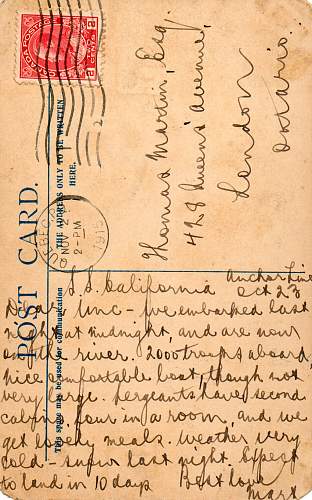 CANADA POSTAGE
2 CENTS 2
QUEBEC
NOV 2
2-PM
1915
POST CARD.
THE ADDRESS ONLY TO BE WRITTEN
HERE.
This space may be used for communication
Thomas Martin, Esq
428 Queens Avenue,
London
Ontario.
S.S. California
Anchor Line
Oct 23
Dear Unc - I've embarked last
night at midnight, and are now
on the river. 2000 troops aboard,
nice comfortable boat, though not
very large. Sergeants have second
cabin, four in a room, and we
get lovely meals. Weather very
cold - snow last night. Expect
to land in 10 days Best love